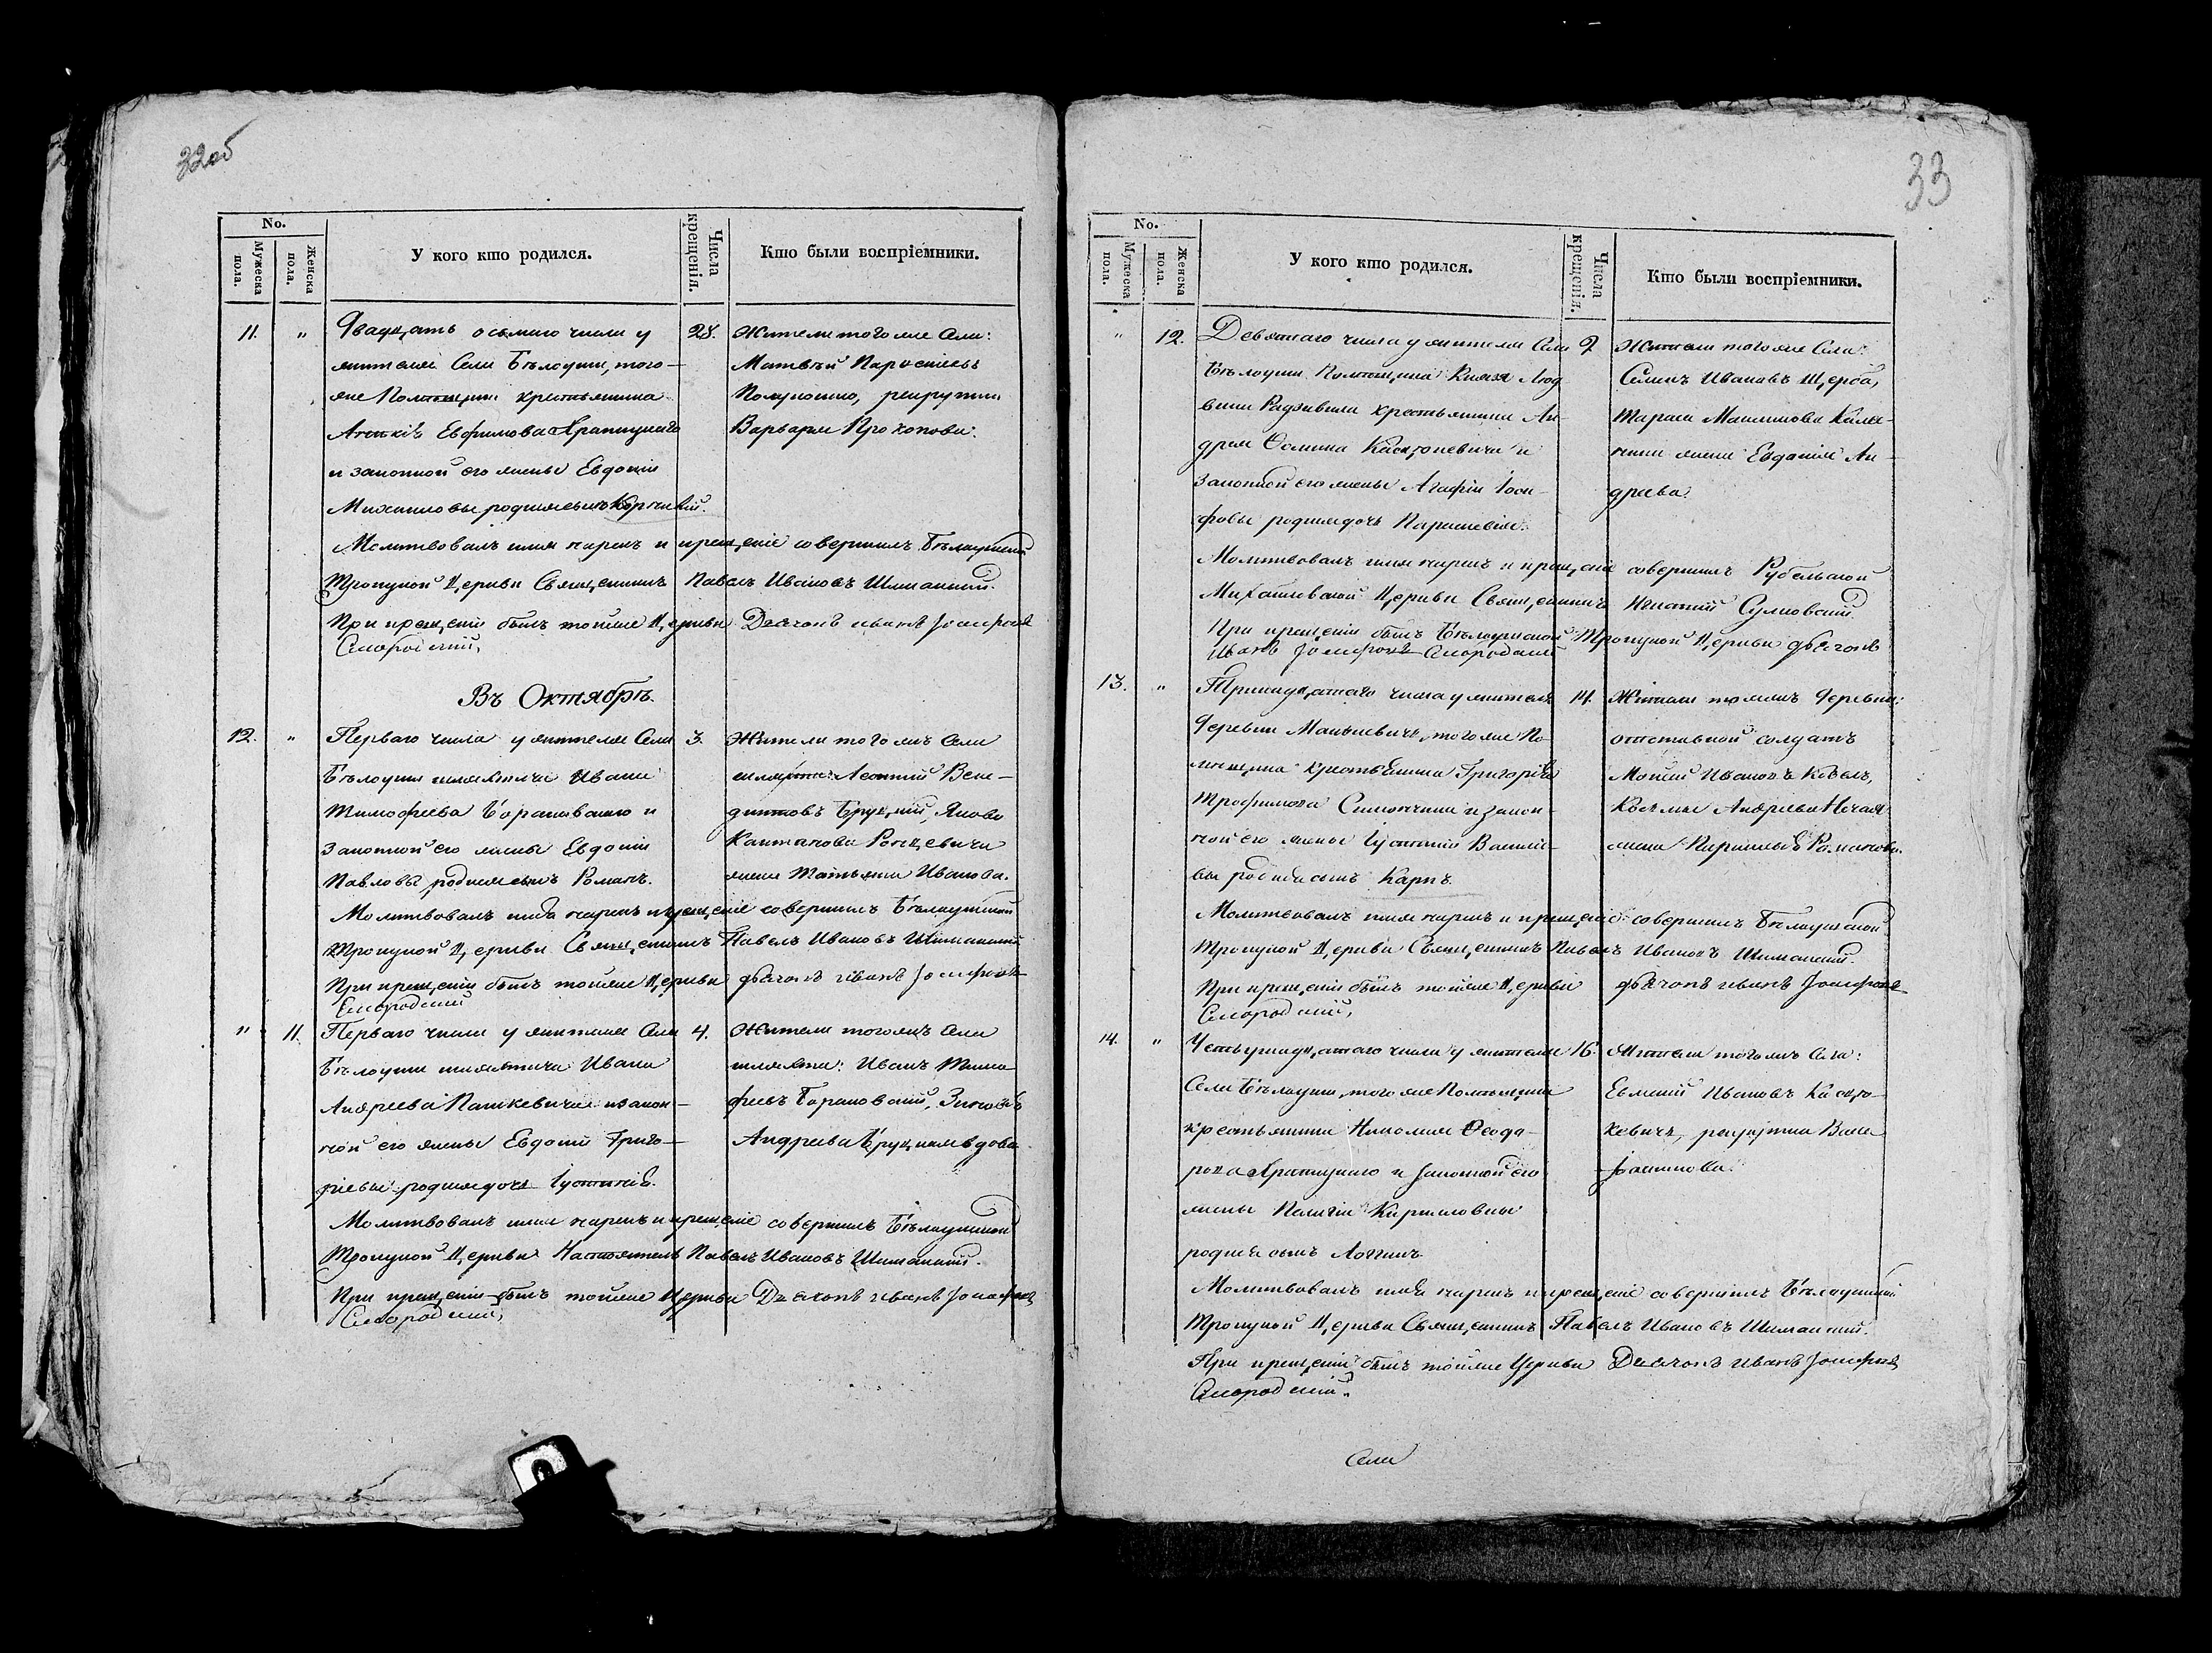 32об
No.
Мужеска пола.
Женска пола.
У кого кто родился.
Числа крещенія.
Кто были воспріемники.
11. " Двадцать осьмаго числа у 28. Жители того же Села:
жителей Села Бѣлоуши, того-
Матвѣй
же Помѣщика крестьянина
Полукошко, рекрутка
Евфимова Храпуцкаго
Варвара Прохопова.
и законной его жены Евдокіи
Михаиловы родился сынъ
Молитвовалъ имя нарекъ и крещеніе совершилъ Бѣлоушской
Троицкой Церкви Священникъ Павелъ Ивановъ Шиманскій.
При крещеніи былъ тойже Церкви Дьячокъ Иванъ Іосифовъ
Смородскій,
Въ Октябрѣ.
12. " Перваго числа у жителя Села 3. Жители того жъ Села
Бѣлоуши шляхтича Ивана
шляхта: Леонтій Вене-
Тимофеева Барановскаго и
диктовъ Бруцкій, Якова
законной его жены Евдокіи
Ронцевича
Павловы родился сынъ Романъ.
жена Татьяна Иванова.
Молитвовалъ имя нарекъ и крещеніе совершилъ Бѣлоушской
Троицкой Церкви Священникъ Павелъ Ивановъ Шиманскій
При крещеніи былъ тойже Церкви дьячокъ Иванъ Іосифовъ
Смородскій
" 11. Перваго числа у жителя Села 4. Жители того жъ Села
Бѣлоуши шляхтича Ивана
шляхта: Иванъ Тимо-
Андреева Пашкевича и закон-
феевъ Барановскій,
ной его жены Евдокіи Григо-
Андреева вдова
ріевы родилась дочь Іустинія.
Молитвовалъ имя нарекъ и крещеніе совершилъ Бѣлоушской
Троицкой Церкви Настоятель Павелъ Ивановъ Шиманскій.
При крещеніи былъ тойже Церкви Дьячокъ Иванъ Іосифовъ
Смородскій,
33
No.
Мужеска пола.
Женска пола.
У кого кто родился.
Числа крещенія.
Кто были воспріемники.
" 12. Девятаго числа у жителя Села 9 Жители того же Села:
Бѣлоуши Помѣщика Князя Люд-
Ивановъ Щерба,
вика Радзивила крестьянина Ан-
Тараса Максимова
дрея
жена Евдокія Ан-
законной его жены Агафіи Іоси-
дреева.
фовы родилась дочь Параскевія.
Молитвовалъ имя нарекъ и крещеніе совершилъ Рубельской
Михайловской Церкви Священникъ Игнатій Сулковскій.
При крещеніи былъ Бѣлоушской Троицкой Церкви дьячокъ
Иванъ Іосифовъ Смородскій
13. " Тринадцатаго числа у жителя 14. Жители той жъ деревни:
деревни того же По-
отставной солдатъ
мѣщика крестьянина Григорія
Мойсей Ивановъ
Трофимова и закон-
Косьмы Андреева
ной его жены Іустиніи Василіе-
жена Романова.
вы родился сынъ Карпъ.
Молитвовалъ имя нарекъ и крещеніе совершилъ Бѣлоушской
Троицкой Церкви Священникъ Павелъ Ивановъ Шиманскій.
При крещеніи былъ тойже Церкви дьячокъ Иванъ Іосифовъ
Смородскій,
14. " Четырнадцатаго числа у жителя 16. Жители того жъ Села:
Села Бѣлоуши, того же Помѣщика
Евмений Ивановъ
крестьянина Николая Феодо-
рова Храпуцкаго и законной его
жены Пелагіи Кириловны
родился сынъ Логинъ.
Молитвовалъ имя нарекъ и крещеніе совершилъ Бѣлоушской
Троицкой Церкви Священникъ Павелъ Ивановъ Шиманскій.
При крещеніи былъ тойже Церкви Дьячокъ Иванъ Іосифовъ
Смородскій.
Села